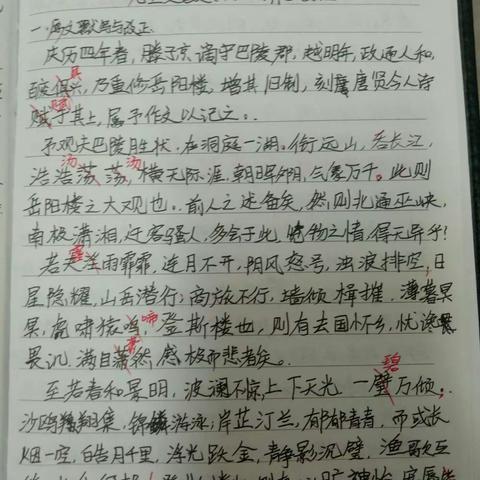 一.原文默写与改正
庆历四年春,滕子京谪守巴陵郡,越明年,政通人和,
百废俱兴,乃重修岳阳楼,增其旧制,刻唐贤今人诗
赋于其上,属予作文以记之。
予观夫巴陵胜状,在洞庭一湖。衔远山,吞长江,
浩浩荡荡,横无际涯,朝晖夕阴,气象万千。此则
岳阳楼之大观也。前人之述备矣,然则北通巫峡,
南极潇湘,迁客骚人,多会于此,览物之情,得无异乎?
若夫淫雨霏霏,连月不开,阴风怒号,浊浪排空,日
星隐耀,山岳潜行;商旅不行,墙倾楫摧,薄暮冥
冥,虎啸猿啼,登斯楼也,则有去国怀乡,忧谗
畏讥,满目萧然,感极而悲者矣。
至若春和景明,波澜不惊,上下天光,一碧万顷;
沙鸥翔集,锦鳞游泳,岸芷汀兰,郁郁青青,而或长
烟一空,皓月千里,浮光跃金,静影沉璧,渔歌互